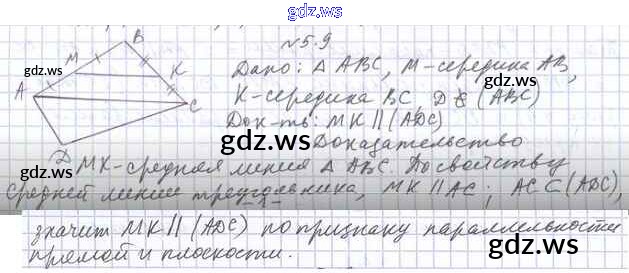 gdz.ws
№5.9
B
M
K
A
C
D
Дано: Δ ABC, M-середина AB,
K-середина BC, D ∉ (ABC)
Док-ть: MK || (ADC)
Доказательство
MK-средняя линия Δ ABC. По свойству
средней линии треугольника, MK || AC; AC ⊂ (ADC),
значит MK || (ADC) по признаку параллельности
прямой и плоскости.
gdz.ws
gdz.ws
gdz.ws
gdz.ws
gdz.ws
gdz.ws